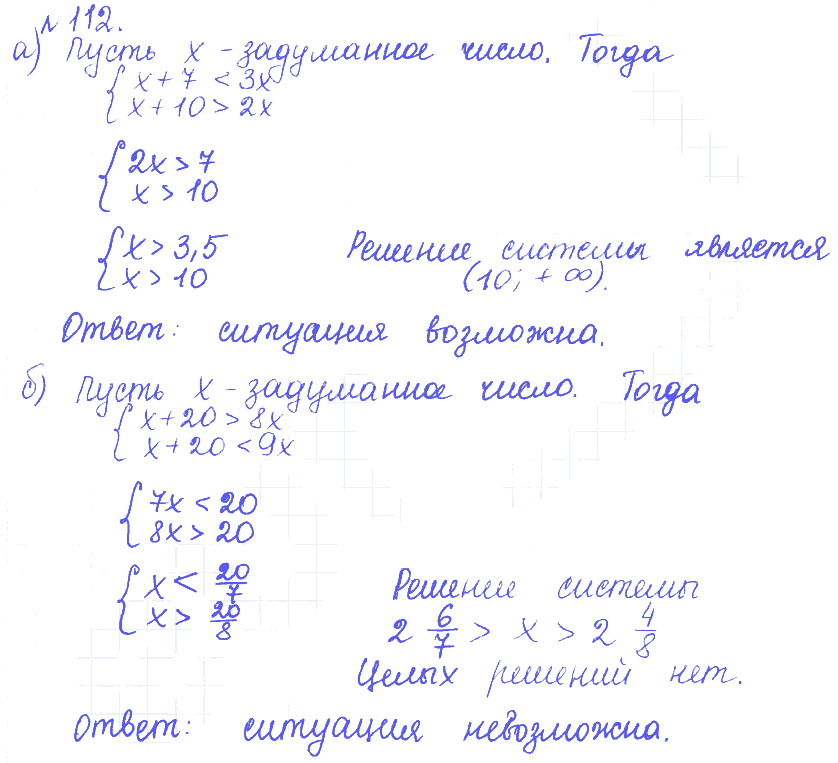 № 112.
а) Пусть x - задуманное число. Тогда
{ x + 7 < 3x
x + 10 > 2x
{ 2x > 7
x > 10
{ x > 3,5
x > 10
Решение системы является
(10; + ∞).
Ответ: ситуация возможна.
б) Пусть x - задуманное число. Тогда
{ x + 20 > 8x
x + 20 < 9x
{ 7x < 20
8x > 20
{ x < 20/7
x > 20/8
Решение системы
2 6/7 > x > 2 4/8
Целых решений нет.
Ответ: ситуация невозможна.